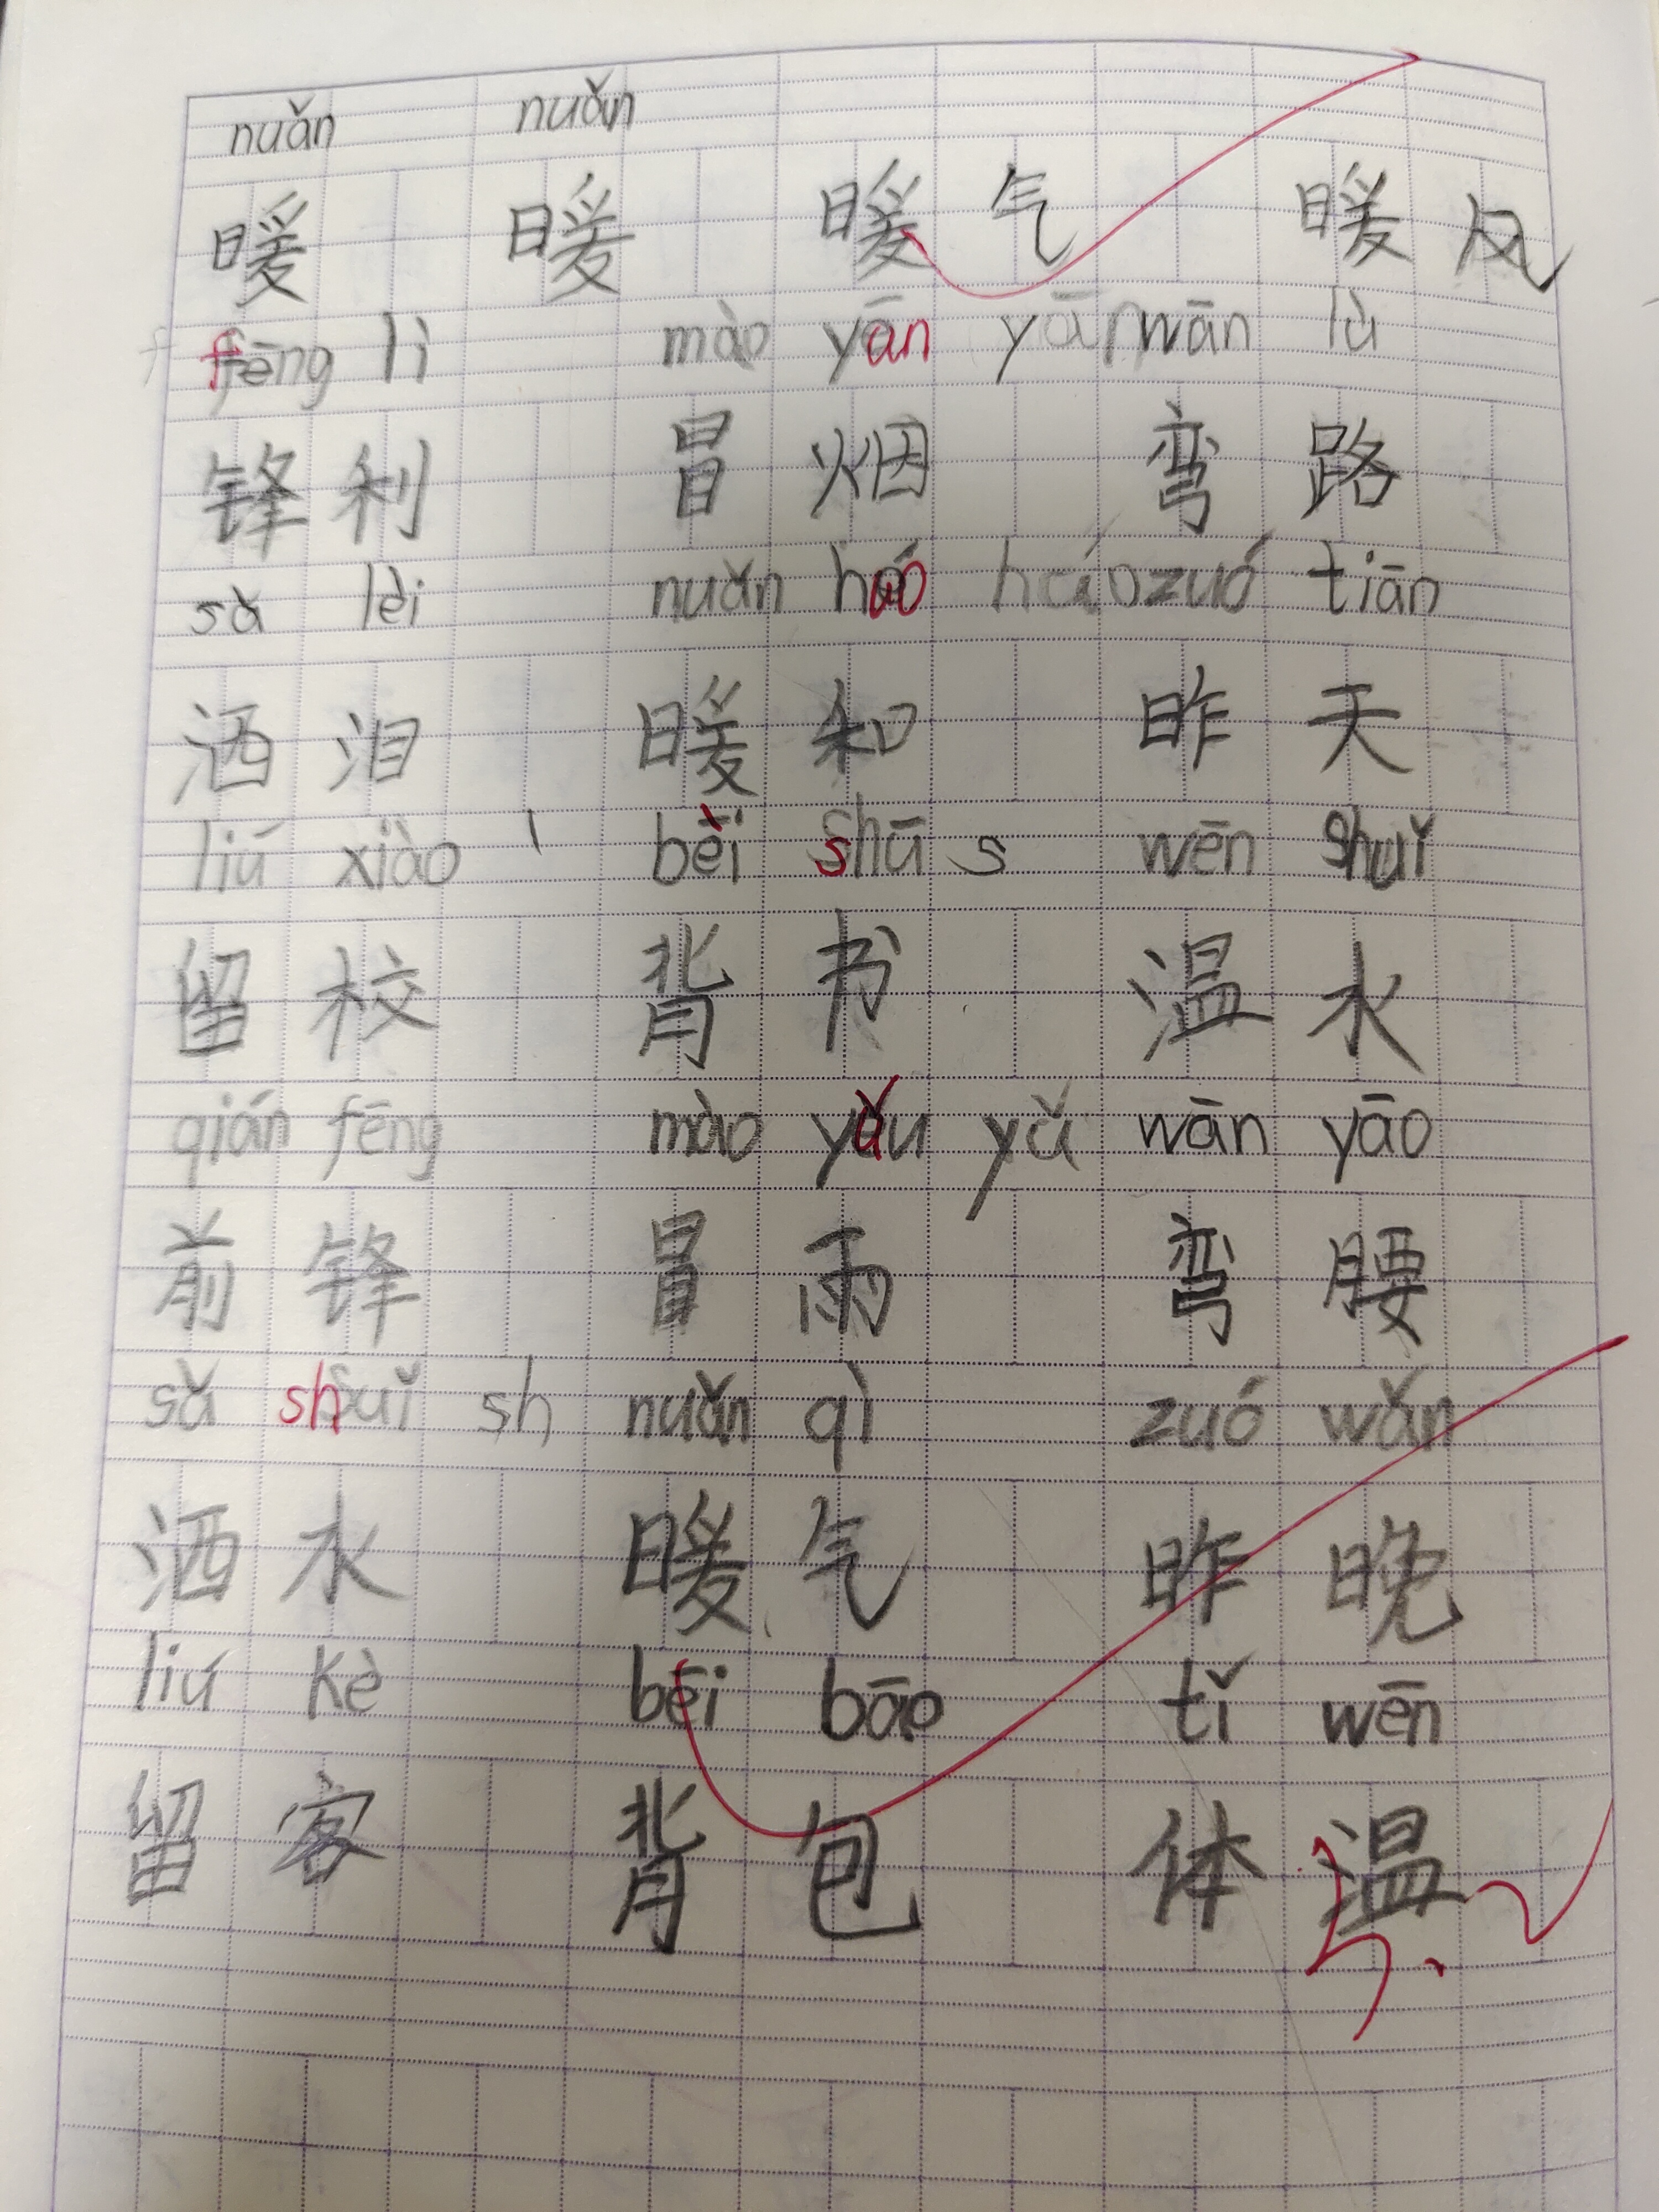 nuǎn nuǎn
暖 暖 暖气 暖风
fēng lì mào yān yān wān lù
锋利 冒烟 弯路
sǎ lèi nuǎn háo háo zuó tiān
洒泪 暖和 昨天
liú xiào bèi shū s wēn shuǐ
留校 背书 温水
qián fēng mào yǔ wān yāo
前锋 冒雨 弯腰
sǎ shuǐ sh nuǎn qì zuó wǎn
洒水 暖气 昨晚
liú kè bēi bāo tǐ wēn
留客 背包 体温